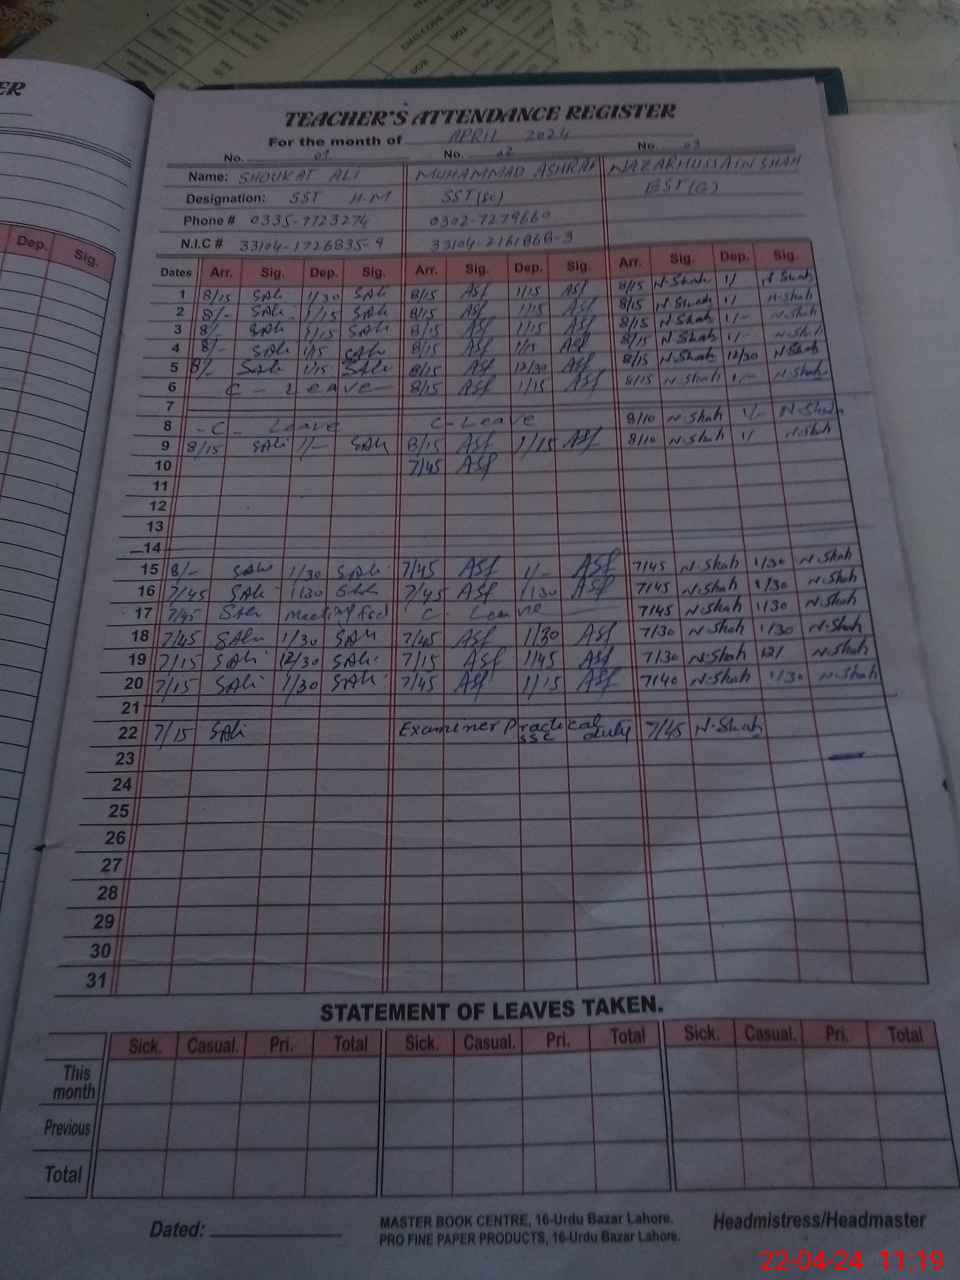 ER
Dep. Sig.
TEACHER'S ATTENDANCE REGISTER
For the month of APRIL 2024
No. 01 No. 02 No. 03
Name: SHOUKAT ALI MUHAMMAD ASHRAF NAZAR HUSSAIN SHAH
Designation: SST H.M SST(sc) EST(G)
Phone # 0335-7723274 0302-7279660
N.I.C # 33104-1726835-9 33104-2161866-3
Dates Arr. Sig. Dep. Sig. Arr. Sig. Dep. Sig. Arr. Sig. Dep. Sig.
1 8/15 SAli 1/30 SAli 8/15 Asf 1/15 Asf 8/15 N-Shah 1/ N-Shah
2 8/- SAli 1/15 SAli 8/15 Asf 1/15 Asf 8/15 N-Shah 1/ N-Shah
3 8/- SAli 1/15 SAli 8/15 Asf 1/15 Asf 8/15 N-Shah 1/- N-Shah
4 8/- SAli 1/15 SAli 8/15 Asf 1/15 Asf 8/15 N-Shah 1/- N-Shah
5 8/- SAli 1/15 SAli 8/15 Asf 12/30 Asf 8/15 N-Shah 12/30 N-Shah
6 C - Leave 8/15 Asf 1/15 Asf 8/15 N-Shah 1/- N-Shah
7
8 - C - Leave C-Leave 8/10 N-Shah 1/- N-Shah
9 8/15 SAli 1/- SAli 8/15 Asf 1/15 Asf 8/10 N-Shah 1/ N-Shah
10 7/45 Asf
11
12
13
14
15 8/- SAli 1/30 SAli 7/45 Asf 1/- Asf 7/45 N-Shah 1/30 N-Shah
16 7/45 SAli 1/30 SAli 7/45 Asf 1/30 Asf 7/45 N-Shah 1/30 N-Shah
17 7/45 SAli meeting C-Leave 7/45 N-Shah 1/30 N-Shah
18 7/45 SAli 1/30 SAli 7/45 Asf 1/30 Asf 7/30 N-Shah 1/30 N-Shah
19 7/15 SAli 12/30 SAli 7/15 Asf 1/45 Asf 7/30 N-Shah 12/ N-Shah
20 7/15 SAli 1/30 SAli 7/45 Asf 1/15 Asf 7/40 N-Shah 1/30 N-Shah
21
22 7/15 SAli Examiner Practical SSC duty 7/45 N-Shah
23
24
25
26
27
28
29
30
31
STATEMENT OF LEAVES TAKEN.
Sick. Casual. Pri. Total Sick. Casual. Pri. Total Sick. Casual. Pri. Total
This month
Previous
Total
Dated:
MASTER BOOK CENTRE, 16-Urdu Bazar Lahore.
PRO FINE PAPER PRODUCTS, 16-Urdu Bazar Lahore.
Headmistress/Headmaster
22-04-24 11:19